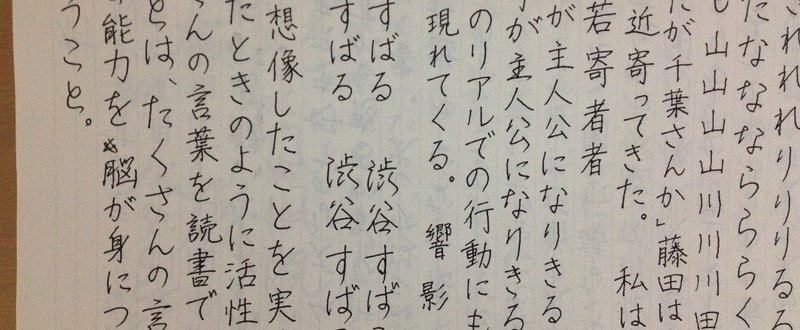 いれれれりりりるる
たななならららく
山山山山川川川田
たが千葉さんか」藤田は
近寄ってきた。　私は
若寄者者
が主人公になりきる
が主人公になりきる
のリアルでの行動にも
現れてくる。　響　影
すばる　渋谷すばる
すばる　渋谷すばる
想像したことを実
たときのように活性
さんの言葉を読書で
とは、たくさんの言
能力を脳が身につ
うこと。